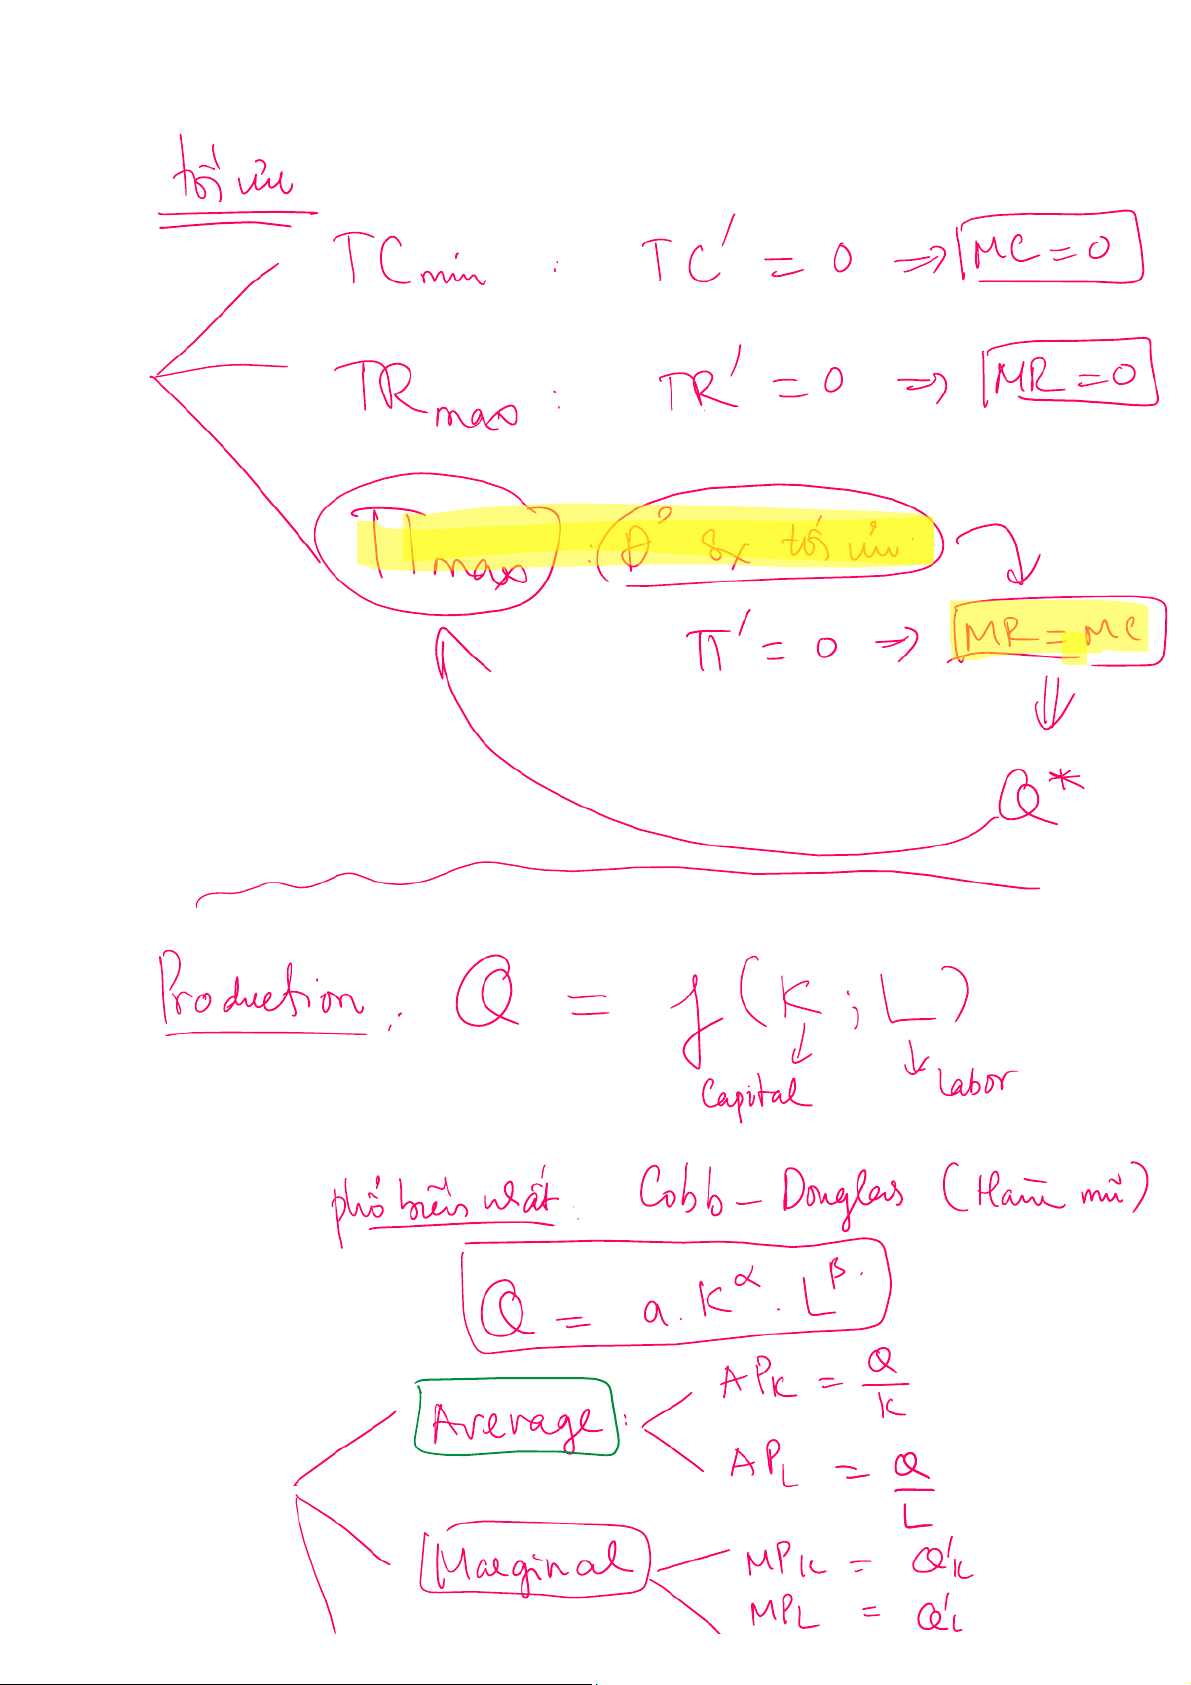 tối ưu
TCmin : TC' = 0 => MC = 0
TRmax : TR' = 0 => MR = 0
Πmax : Đ' sx tối ưu.
Π' = 0 => MR = MC
Q*
Production : Q = f(K ; L)
Capital Labor
phổ biến nhất : Cobb - Douglas (Hàm mũ)
Q = a.K^α . L^β.
Average : APK = Q/K
APL = Q/L
Marginal MPK = Q'K
MPL = Q'L